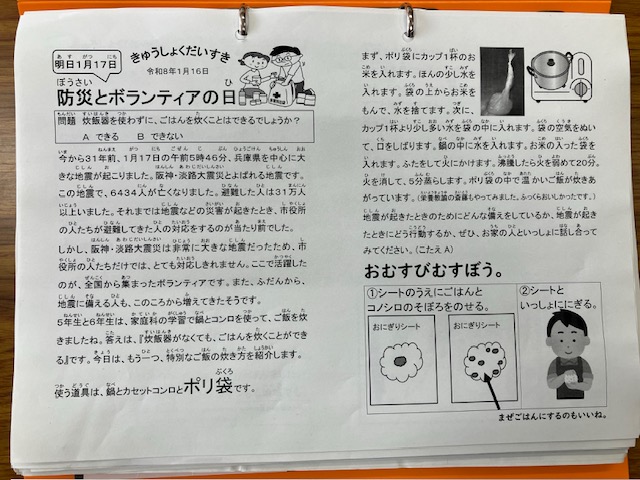 明日1月17日
きゅうしょくだいすき
令和8年1月16日
防災とボランティアの日
問題 炊飯器を使わずに、ごはんを炊くことはできるでしょうか?
A できる B できない
今から31年前、1月17日の午前5時46分、兵庫県を中心に大
きな地震が起こりました。阪神・淡路大震災とよばれる地震です。
この地震で、6434人が亡くなりました。避難した人は31万人
以上いました。それまでは地震などの災害が起きたとき、市役所
の人たちが避難してきた人の対応をするのが当たり前でした。
しかし、阪神・淡路大震災は非常に大きな地震だったため、市
役所の人たちだけでは、とても対応しきれません。ここで活躍した
のが、全国から集まったボランティアです。また、ふだんから、
地震に備える人も、このころから増えてきたそうです。
5年生と6年生は、家庭科の学習で鍋とコンロを使って、ご飯を炊
きましたね。答えは、『炊飯器がなくても、ごはんを炊くことができ
る』です。今日は、もう一つ、特別なご飯の炊き方を紹介します。
使う道具は、鍋とカセットコンロとポリ袋です。
まず、ポリ袋にカップ1杯のお
米を入れます。ほんの少し水を
入れます。袋の上からお米を
もんで、水を捨てます。次に、
カップ1杯より少し多い水を袋の中に入れます。袋の空気をぬい
て、口をしばります。鍋の中に水を入れます。お米の入った袋を
入れます。ふたをして火にかけます。沸騰したら火を弱めて20分。
火を消して、5分蒸らします。ポリ袋の中で温かいご飯が炊きあ
がっています。(栄養教諭の斎藤もやってみました。ふっくらおいしかったです。)
地震が起きたときのためにどんな備えをしているか、地震が起
きたときにどう行動するか、ぜひ、お家の人といっしょに話し合って
みてください。(こたえ A)
おむすびむすぼう。
①シートのうえにごはんと
コノシロのそぼろをのせる。
おにぎりシート
おにぎりシート
②シートと
いっしょににぎる。
まぜごはんにするのもいいね。